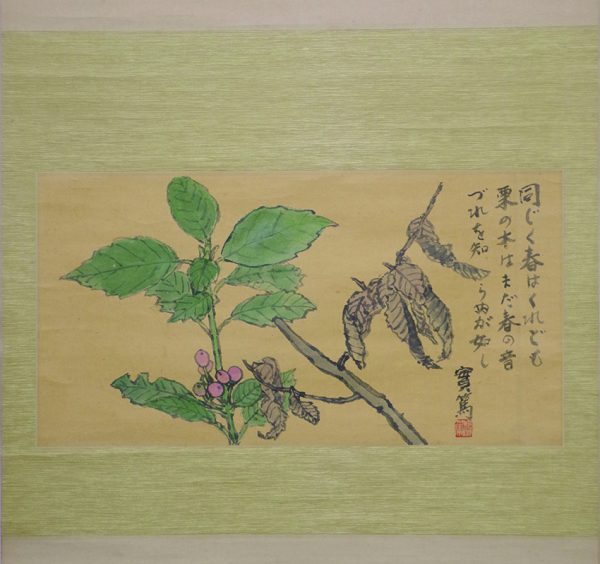 同じく春はくれども
栗の木はまだ春の音
づれを知らぬが如し
實篤